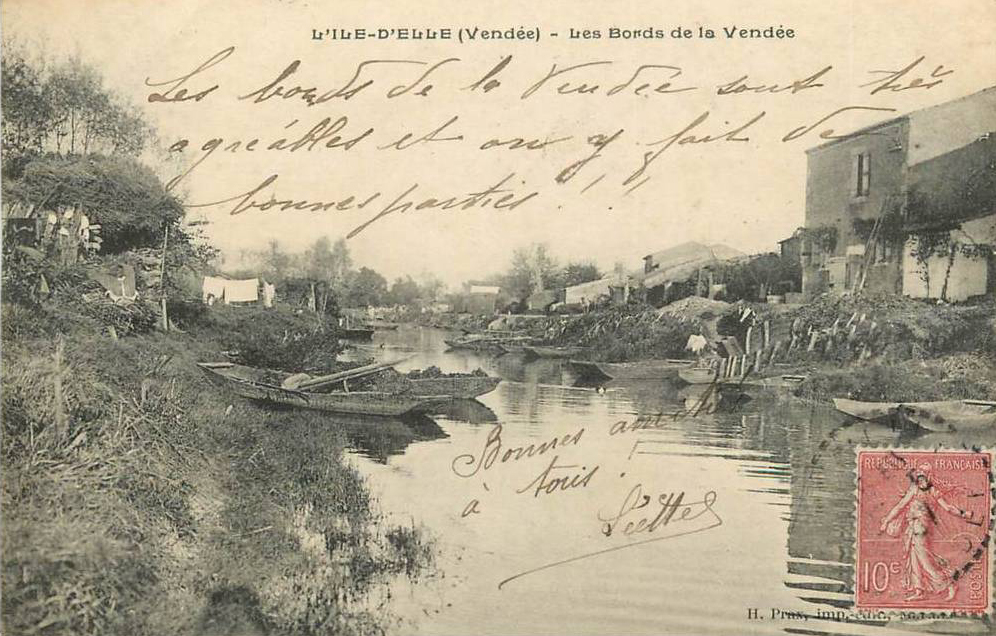 L'ILE-D'ELLE (Vendée) - Les Bords de la Vendée
Les bords de la Vendée sont très
agréables et on y fait de
bonnes parties ! !!
Bonnes amitiés
à tous !
REPUBLIQUE FRANÇAISE
10c
POSTES
H. Prax, imp.-édit.,